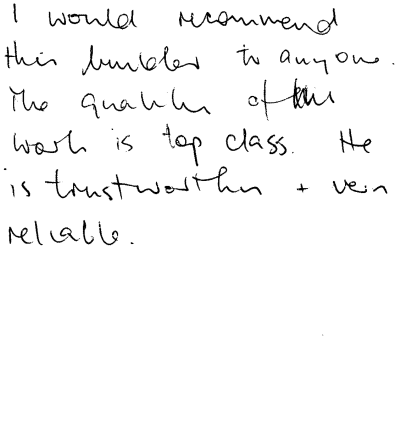 I would recommend
this builder to anyone.
The quality of his
work is top class. He
is trustworthy + very
reliable.